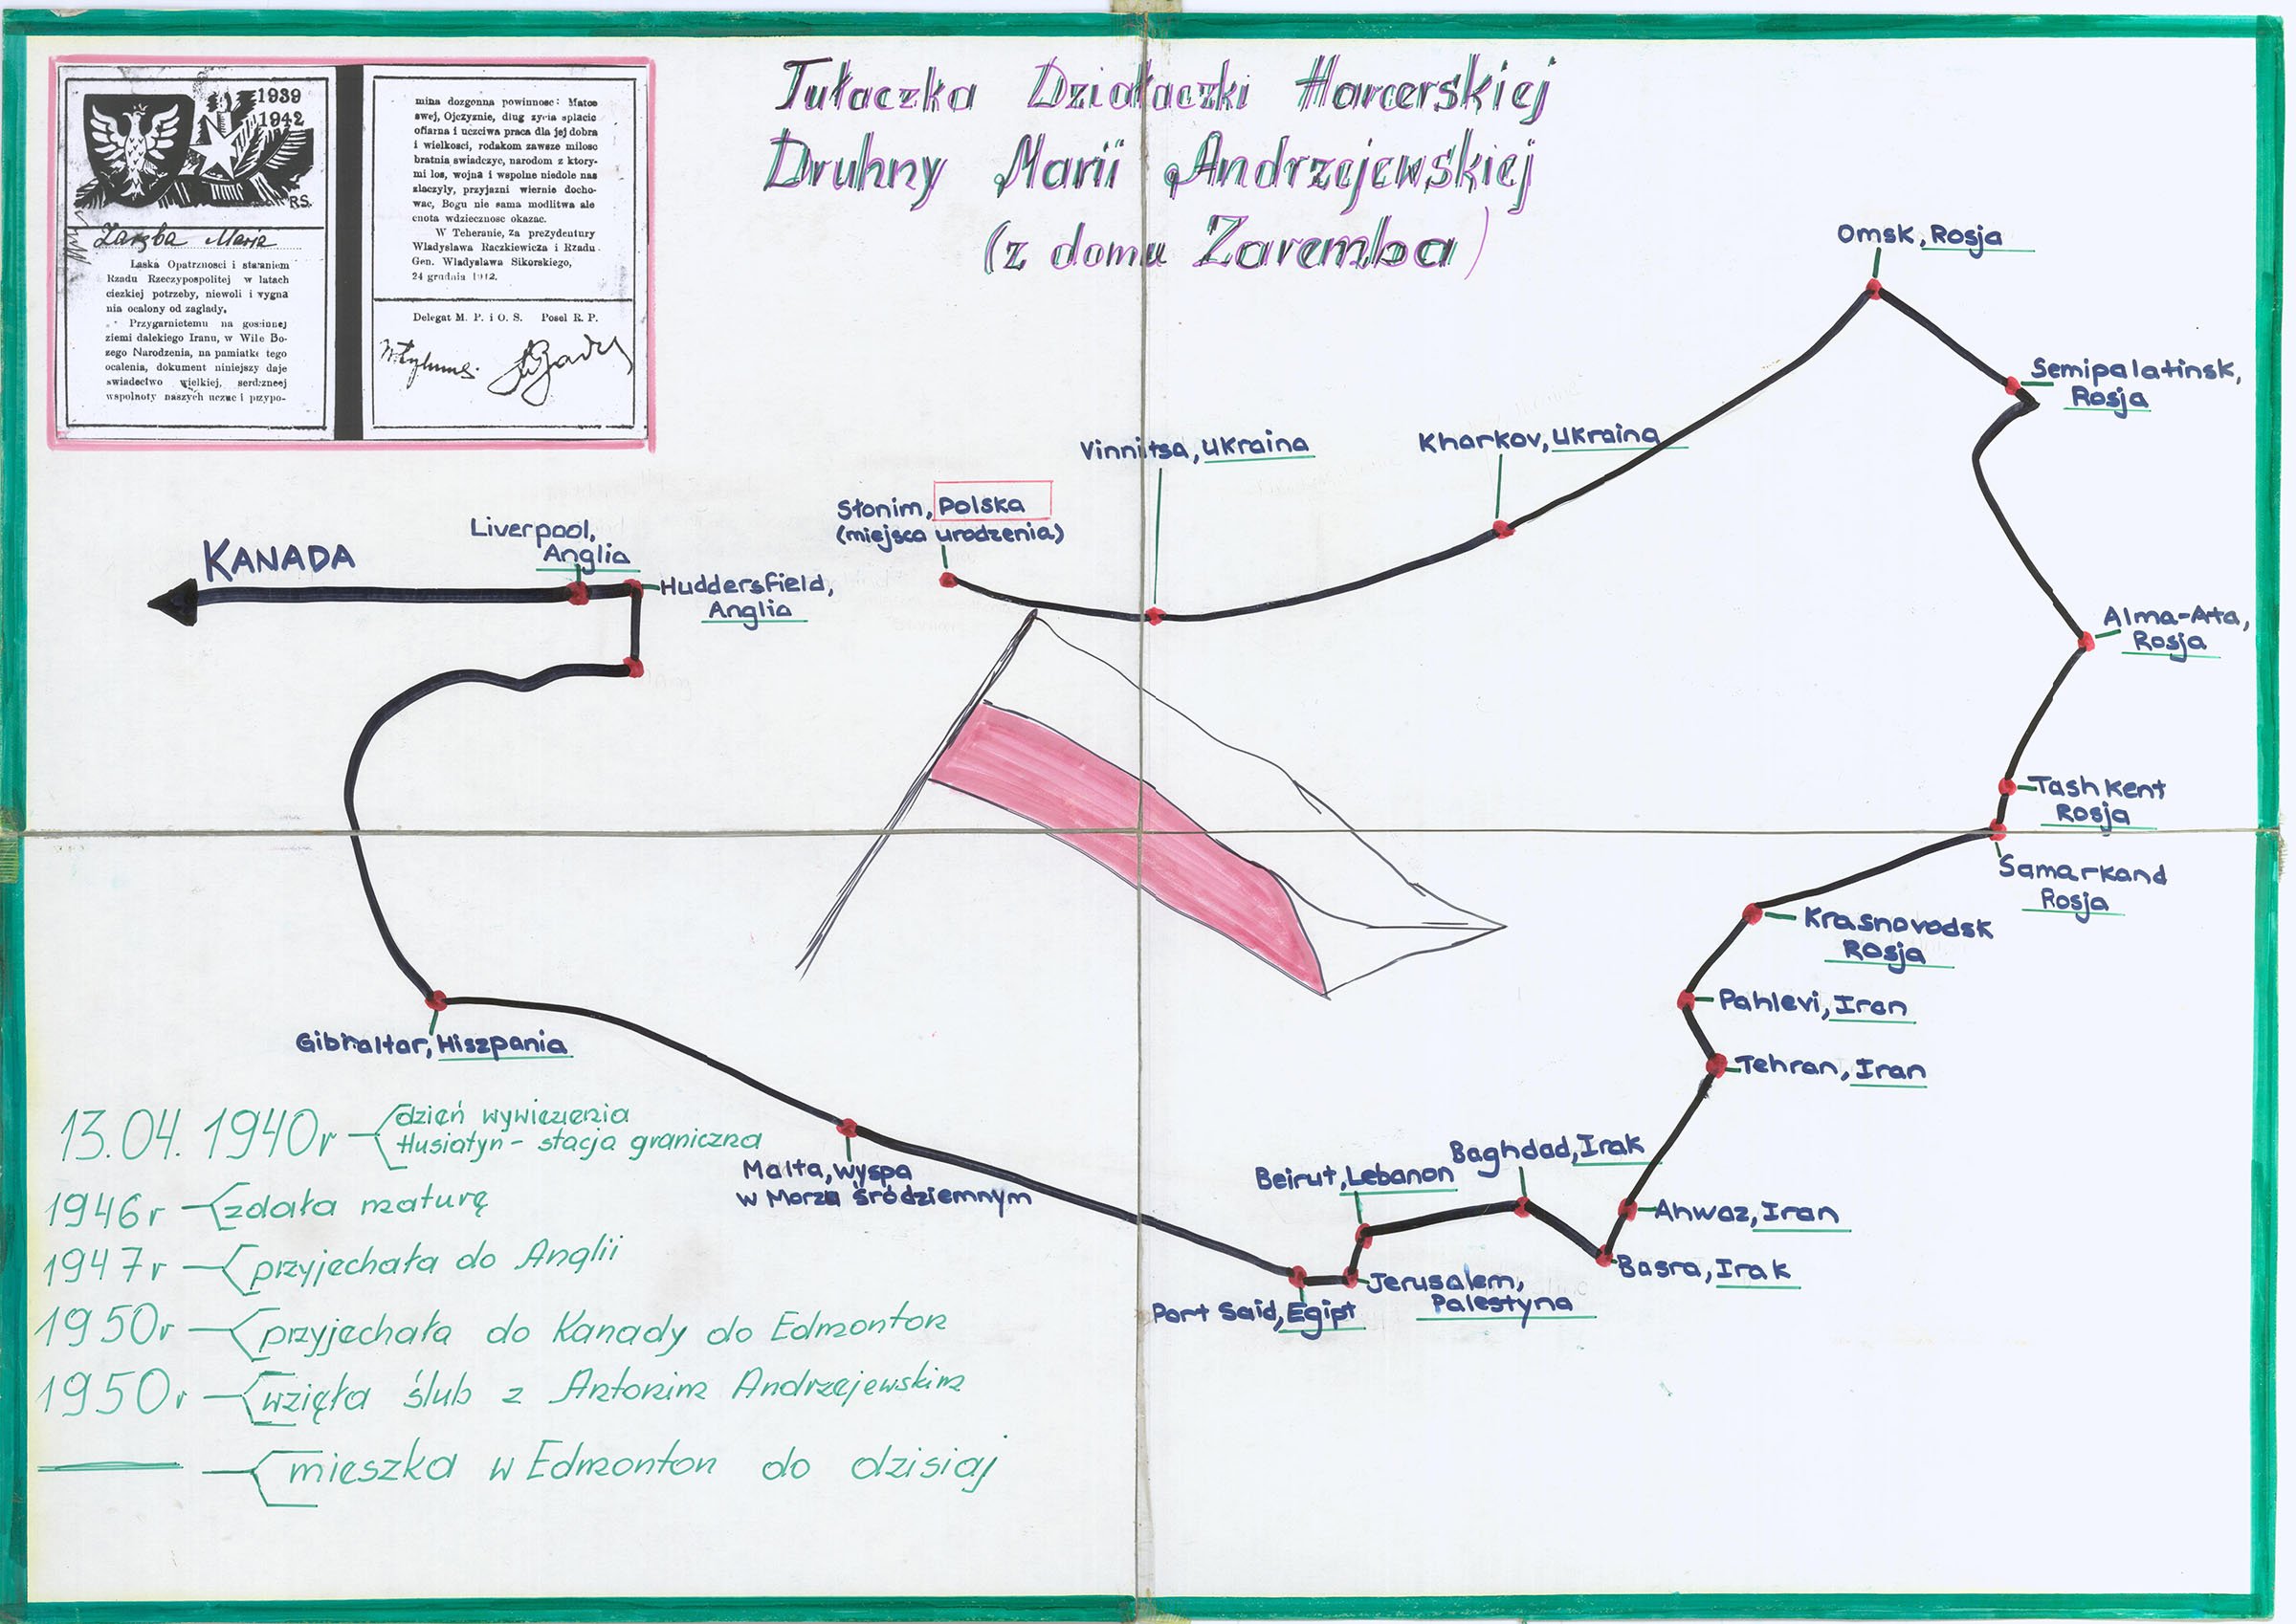 1939
1942
R.S.
Zaręba Maria
Laska Opatrznosci i staraniem
Rzadu Rzeczypospolitej w latach
ciezkiej potrzeby, niewoli i wygna
nia ocalony od zaglady,
Przygarnietemu na goscinnej
ziemi dalekiego Iranu, w Wile Bo-
zego Narodzenia, na pamiatke tego
ocalenia, dokument niniejszy daje
swiadectwo wielkiej, serdzneej
wspolnoty naszych uczuc i przypo-
mina dozgonna powinnosc: Matce
swej, Ojczyznie, dlug zycia splacic
ofiarna i uczciwa praca dla jej dobra
i wielkosci, rodakom zawsze milosc
bratnia swiadczyc, narodom z ktory-
mi los, wojna i wspolne niedole nas
zlaczyly, przyjazni wiernie docho-
wac, Bogu nie sama modlitwa ale
cnota wdziecznosc okazac.
W Teheranie, za prezydentury
Wladyslawa Raczkiewicza i Rzadu
Gen. Wladyslawa Sikorskiego,
24 grudnia 1942.
Delegat M. P. i O. S. Posel R. P.
Tułaczka Działaczki Harcerskiej
Druhny Marii Andrzejewskiej
(z domu Zaremba)
Omsk, Rosja
Semipalatinsk,
Rosja
Vinnitsa, Ukraina
Kharkov, Ukraina
Słonim, Polska
(miejsca urodzenia)
Liverpool,
Anglia
KANADA
Huddersfield,
Anglia
Alma-Ata,
Rosja
Tashkent
Rosja
Samarkand
Rosja
Krasnovodsk
Rosja
Pahlevi, Iran
Tehran, Iran
Gibraltar, Hiszpania
Malta, wyspa
w Morzu śródziemnym
Beirut, Lebanon
Baghdad, Irak
Ahwaz, Iran
Basra, Irak
Jerusalem,
Palestyna
Port Said, Egipt
13.04.1940r dzień wywiezienia
Husiatyn - stacja graniczna
1946r zdała maturę
1947r przyjechała do Anglii
1950r przyjechała do Kanady do Edmonton
1950r wzięła ślub z Antonim Andrzejewskim
mieszka w Edmonton do dzisiaj